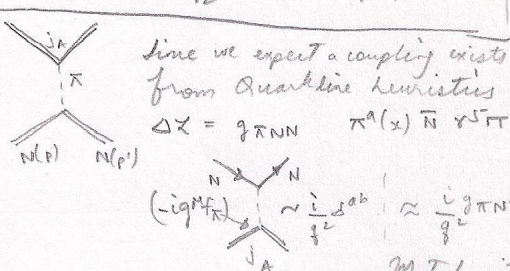 j_A
Since we expect a coupling exists
π
from Quarkline heuristics
Δℒ = g_πNN π^a(x) N̄ γ^5
N(p) N(p')
N N
(-iq^M f_π) ~ i/q^2 δ^ab ≈ i/q^2 g_πN
j_A